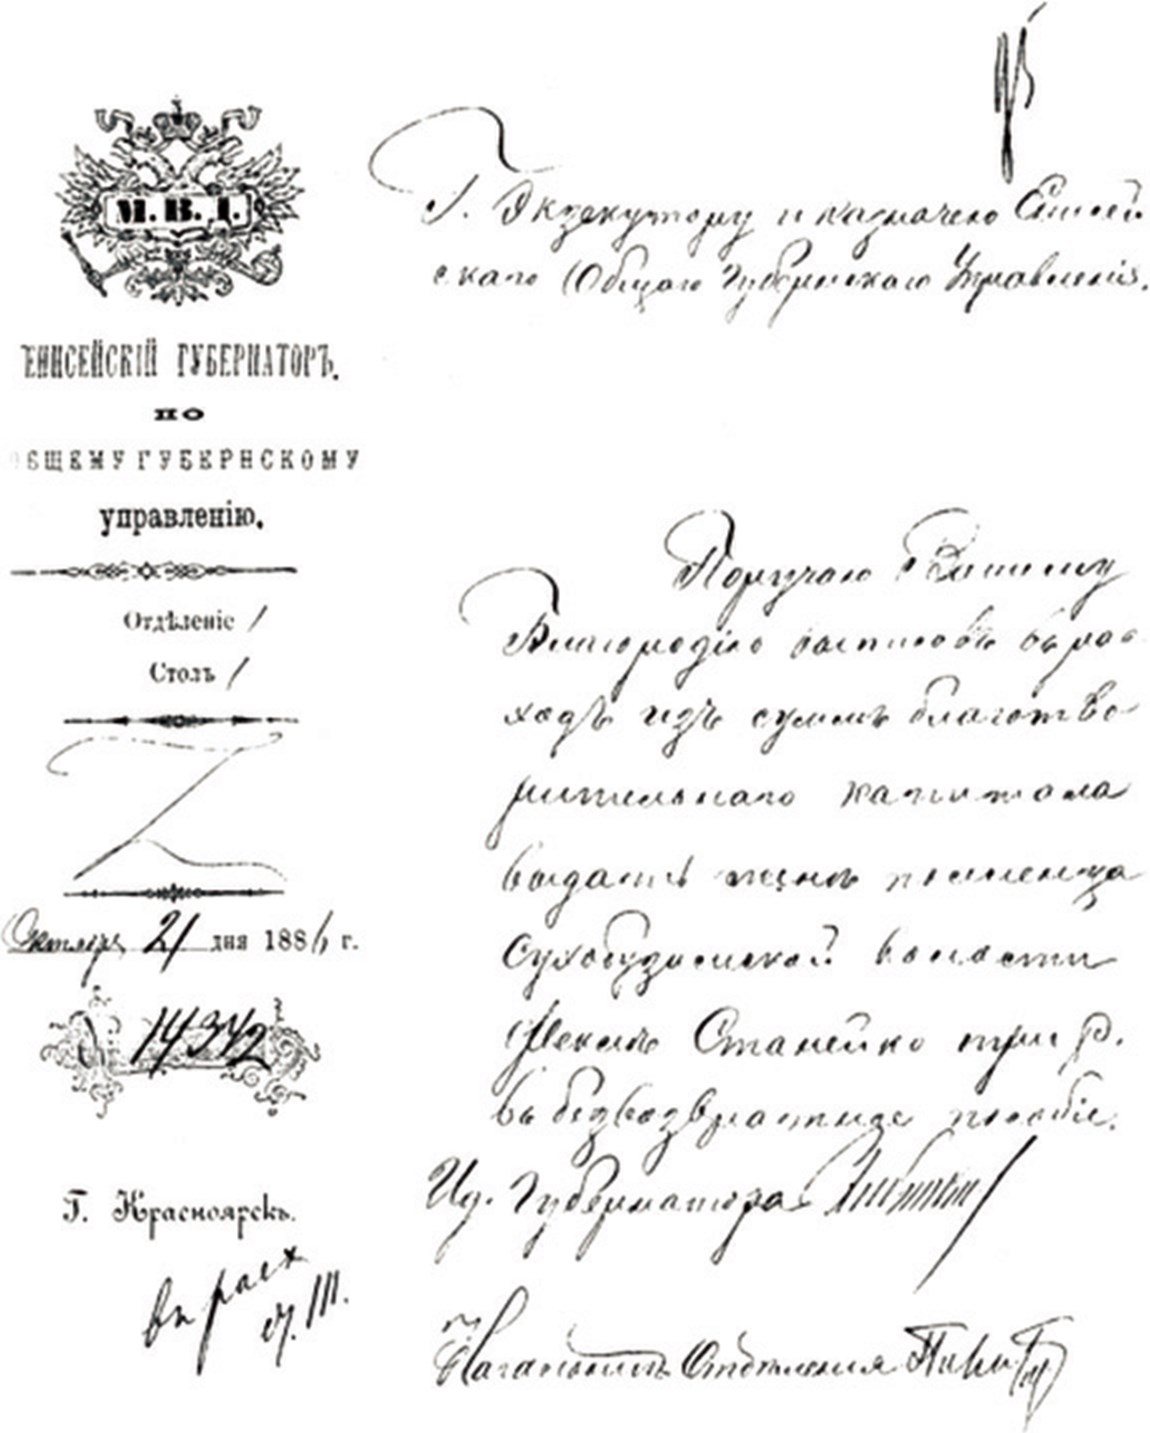 М. В. Д.
ЕНИСЕЙСКІЙ ГУБЕРНАТОРЪ.
ПО
ОБЩЕМУ ГУБЕРНСКОМУ
управленію.
Отдѣленіе 1
Столъ 1
Октября 21 дня 1886 г.
14342
Г. Красноярскъ.
въ расх
ст. III.
Г. Экзекутору и казначею Енисей
скаго Общаго Губернскаго Управленія.
Поручаю Вашему
Благородію записавъ въ рас
ходъ изъ суммъ благотво
рительнаго капитала
выдать женѣ поселенца
Сухобузимской волости
Феклѣ Станейко три р.
въ безвозвратное пособіе.
Ид. Губернатора
Начальникъ Отдѣленія